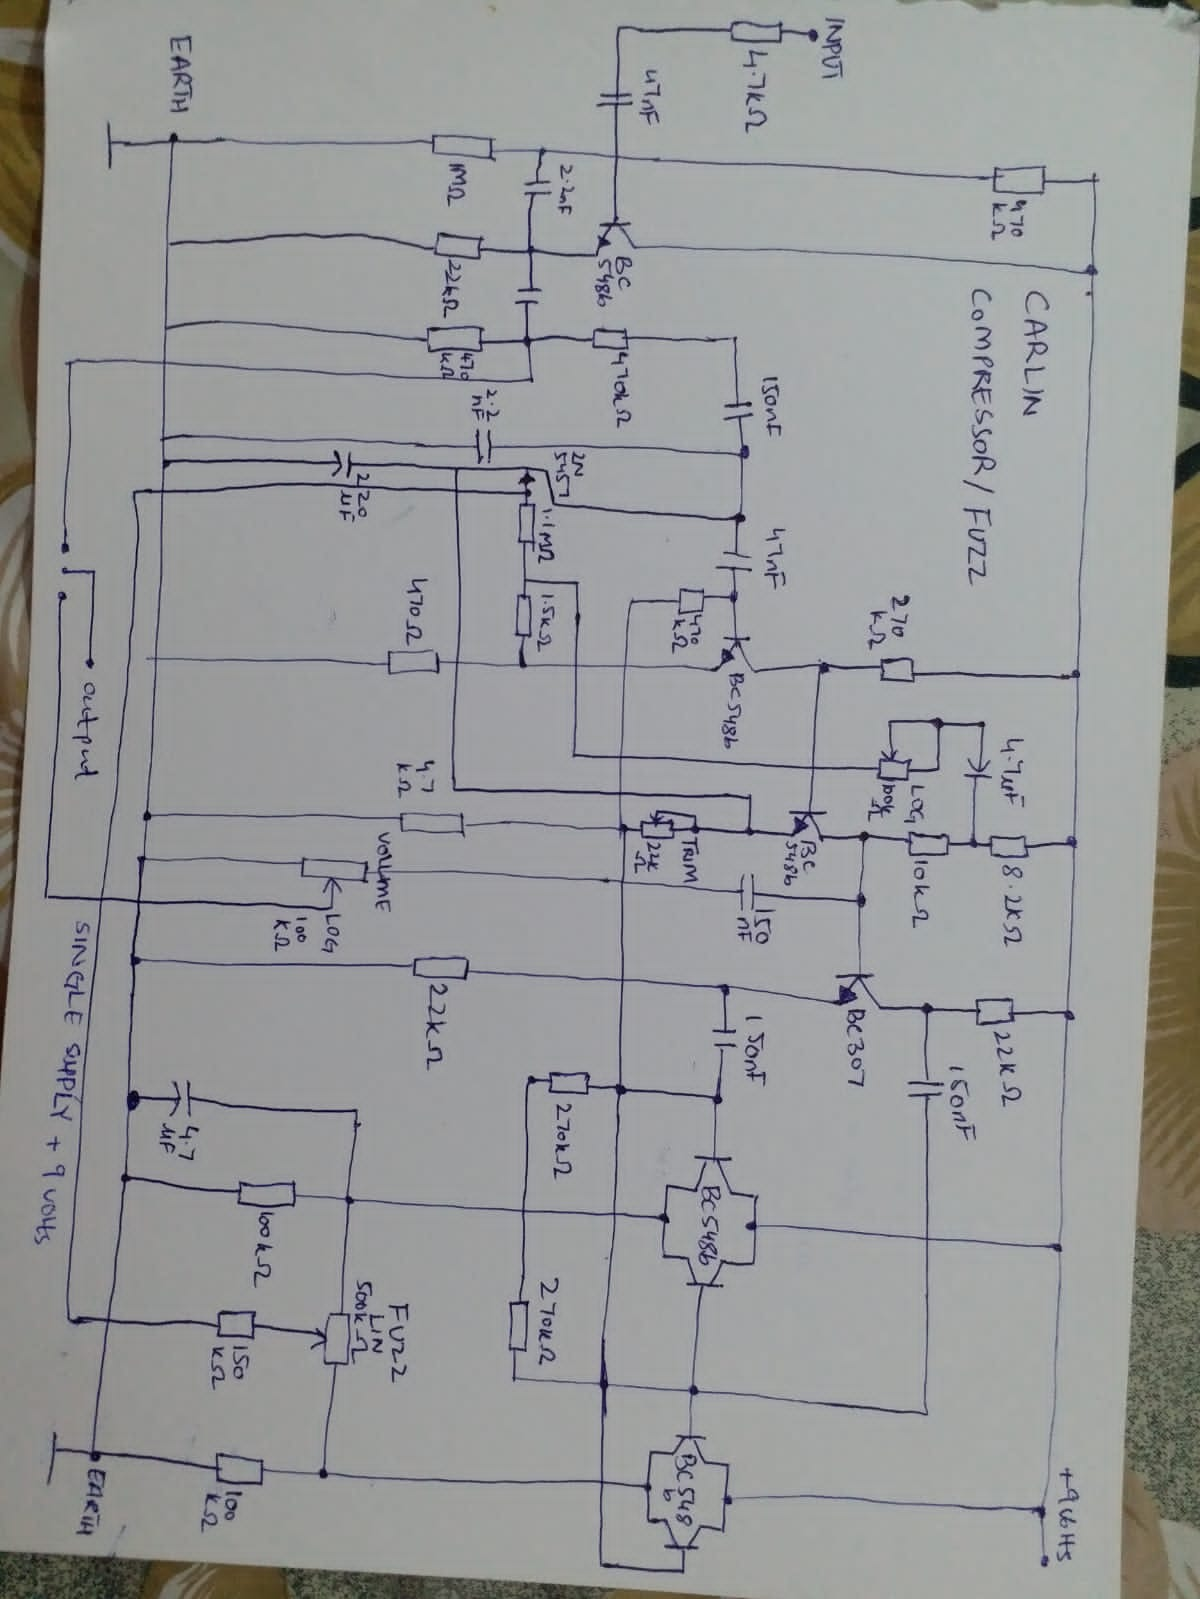 CARLIN
COMPRESSOR/FUZZ
+9VOLTS
INPUT
4.7kΩ
47nF
470
kΩ
BC
548b
2.2nF
1MΩ
22kΩ
470
kΩ
470kΩ
150nF
2.2
nF
2N
5457
220
µF
1.1MΩ
1.5kΩ
47nF
470
kΩ
BC548b
270
kΩ
470Ω
4.7µF
LOG
100k
Ω
8.2kΩ
10kΩ
BC
548b
TRIM
22k
Ω
4.7
kΩ
VOLUME
LOG
100
kΩ
150
nF
22kΩ
BC307
150nF
150nF
22kΩ
270kΩ
270kΩ
BC548b
BC548
b
4.7
µF
100kΩ
FUZZ
LIN
500kΩ
150
kΩ
100
kΩ
EARTH
output
SINGLE SUPPLY +9 VOLTS
EARTH